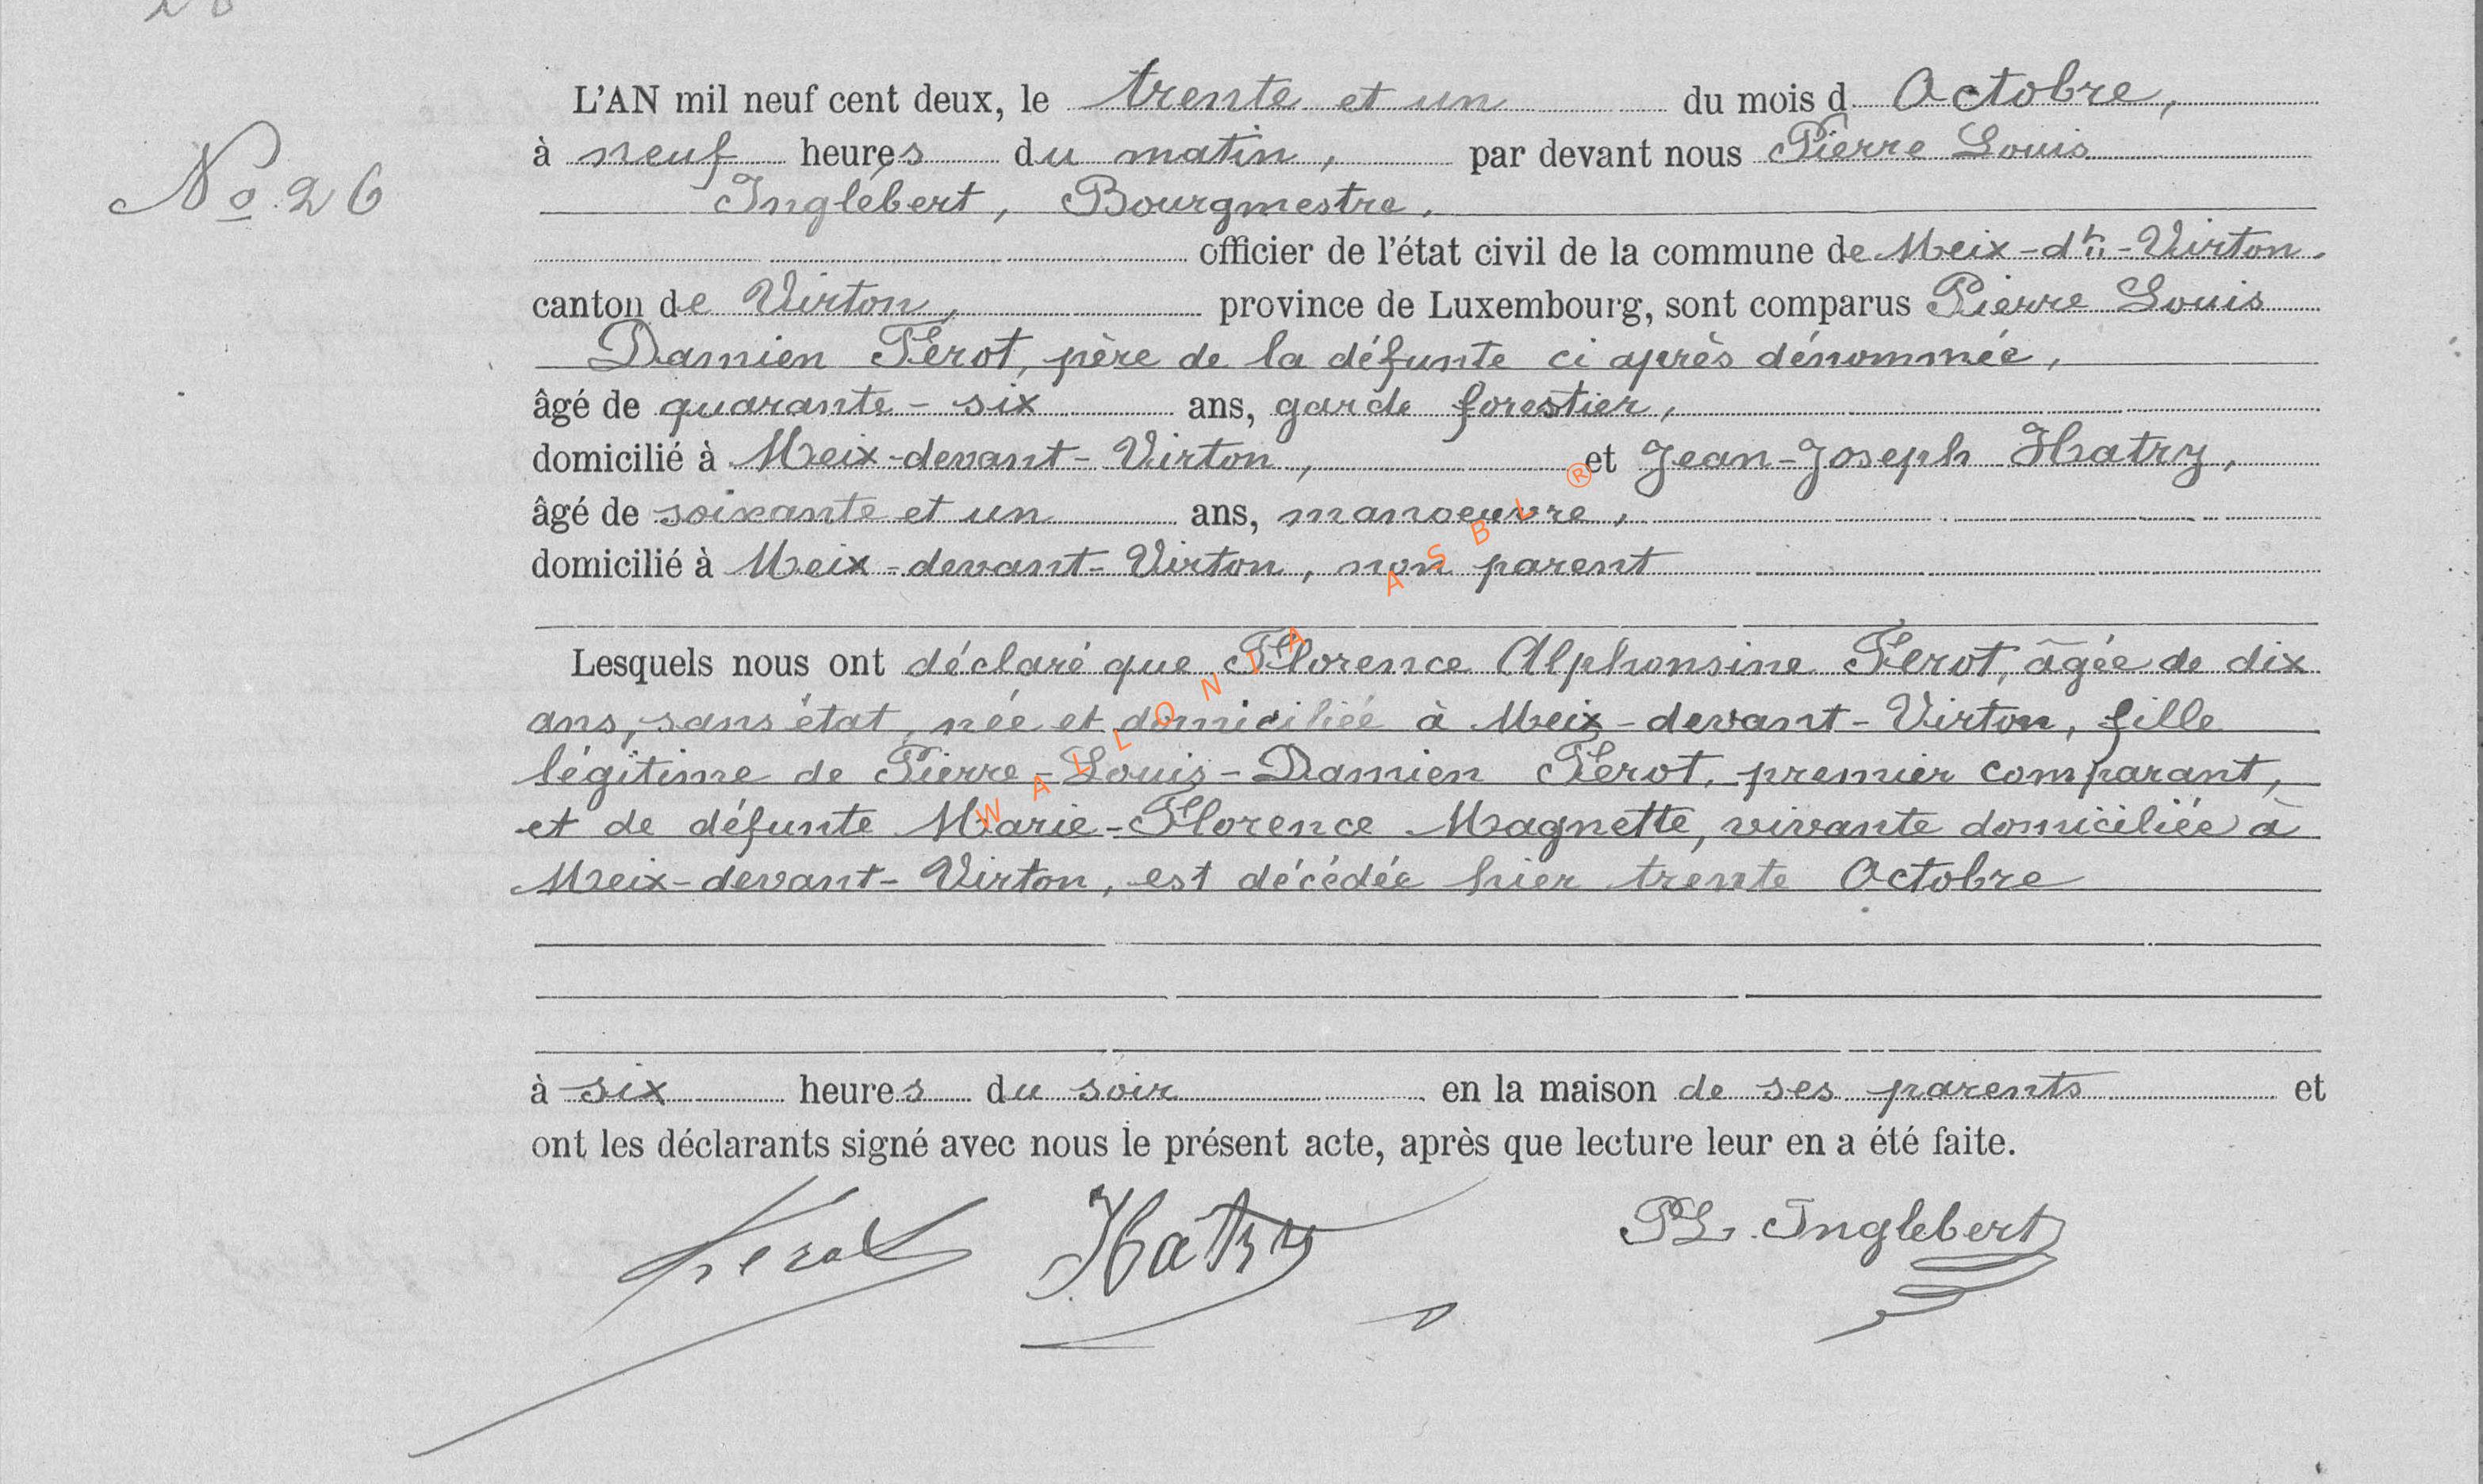 L'AN mil neuf cent deux, le trente et un du mois d Octobre,
à neuf heures du matin, par devant nous Pierre Louis
No 26
Inglebert, Bourgmestre,
officier de l'état civil de la commune de Meix-dt-Virton,
canton de Virton, province de Luxembourg, sont comparus Pierre Louis
Damien Ferot, père de la défunte ci après dénommée,
âgé de quarante-six ans, garde forestier,
domicilié à Meix-devant-Virton, et Jean-Joseph Hatry,
âgé de soixante et un ans, manoeuvre,
domicilié à Meix-devant-Virton, non parent
Lesquels nous ont déclaré que Florence Alphonsine Ferot, âgée de dix
ans, sans état, née et domiciliée à Meix-devant-Virton, fille
légitime de Pierre-Louis-Damien Ferot, premier comparant,
et de défunte Marie-Florence Magnette, vivante domiciliée à
Meix-devant-Virton, est décédée hier trente Octobre
à six heures du soir en la maison de ses parents et
ont les déclarants signé avec nous le présent acte, après que lecture leur en a été faite.
Ferot Hatry PL. Inglebert
WALLONIA ASBL ®